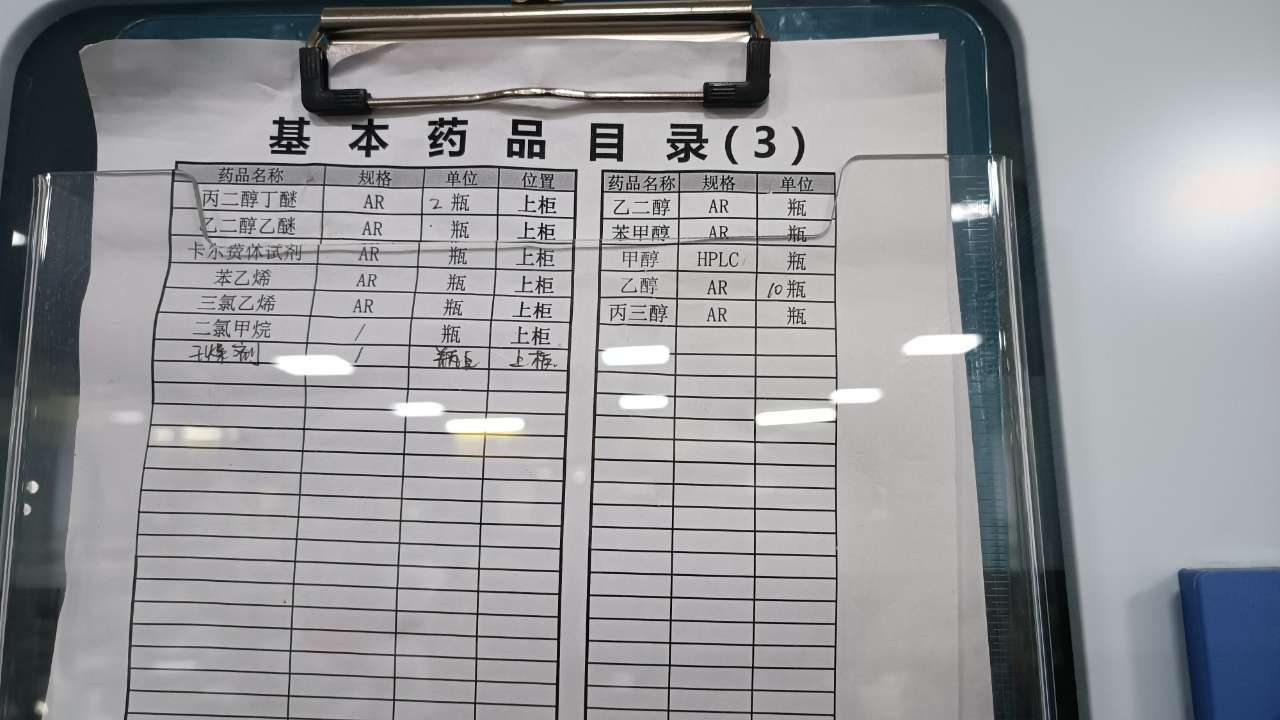 基本药品目录(3)
药品名称 规格 单位 位置
丙二醇丁醚 AR 2瓶 上柜
乙二醇乙醚 AR 瓶 上柜
卡尔费休试剂 AR 瓶 上柜
苯乙烯 AR 瓶 上柜
三氯乙烯 AR 瓶 上柜
二氯甲烷 / 瓶 上柜
干燥剂 / 瓶 上柜
药品名称 规格 单位
乙二醇 AR 瓶
苯甲醇 AR 瓶
甲醇 HPLC 瓶
乙醇 AR 10瓶
丙三醇 AR 瓶